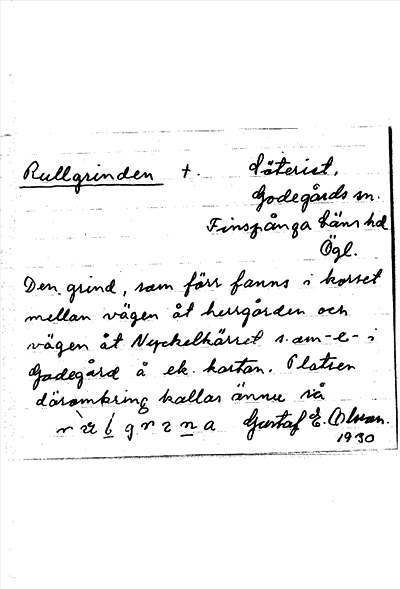 Rullgrinden +. Säterist,
Godegårds sn.
Finspånga läns hd
Ögl.
Den grind, som förr fanns i korset
mellan vägen åt herrgården och
vägen åt Nyckelkärret s.-om-e- i
Godegård å ek. kartan. Platsen
däromkring kallas ännu så
Gustaf E. Olsson.
1930